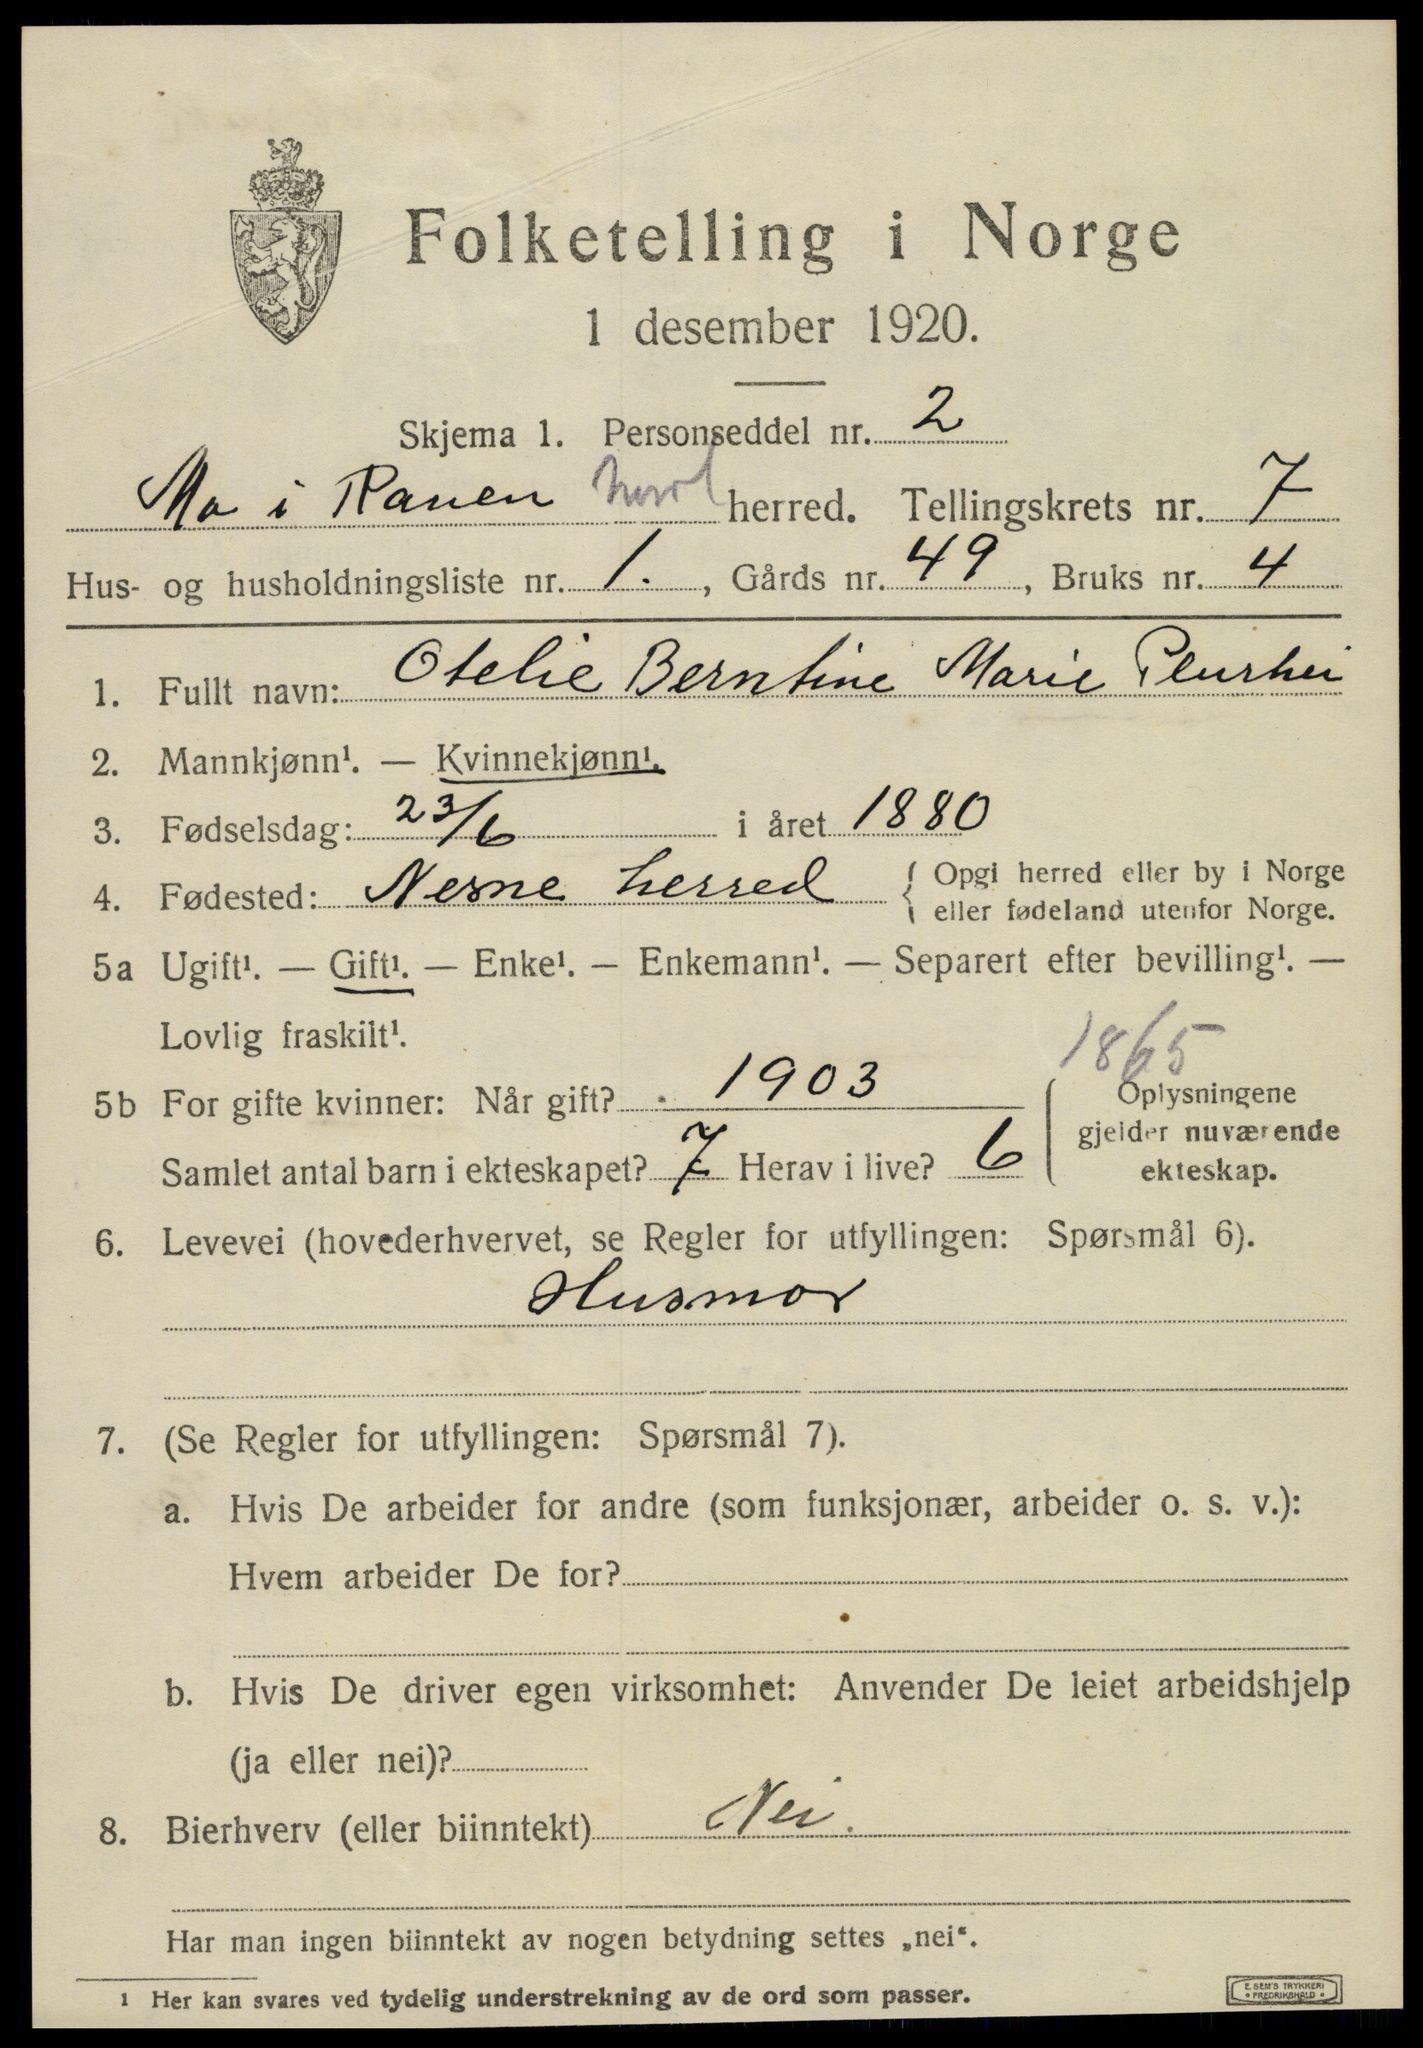 Folketelling i Norge
1 desember 1920.
Skjema 1. Personseddel nr. 2
Mo i Ranen Nord herred. Tellingskrets nr. 7
Hus- og husholdningsliste nr. 1., Gårds nr. 49, Bruks nr. 4
1. Fullt navn: Otelie Berntine Marie Plurhei
2. Mannkjønn¹. — Kvinnekjønn¹.
3. Fødselsdag: 23/6 i året 1880
4. Fødested: Nesne herred { Opgi herred eller by i Norge
eller fødeland utenfor Norge.
5a Ugift¹. — Gift¹. — Enke¹. — Enkemann¹. — Separert efter bevilling¹. —
Lovlig fraskilt¹.
1865
5b For gifte kvinner: Når gift? 1903 { Oplysningene
gjelder nuværende
Samlet antal barn i ekteskapet? 7 Herav i live? 6 ekteskap.
6. Levevei (hovederhvervet, se Regler for utfyllingen: Spørsmål 6).
Husmor
7. (Se Regler for utfyllingen: Spørsmål 7).
a. Hvis De arbeider for andre (som funksjonær, arbeider o. s. v.):
Hvem arbeider De for?
b. Hvis De driver egen virksomhet: Anvender De leiet arbeidshjelp
(ja eller nei)?
8. Bierhverv (eller biinntekt) Nei.
Har man ingen biinntekt av nogen betydning settes „nei“.
1 Her kan svares ved tydelig understrekning av de ord som passer.
E. SEM'S TRYKKERI
FREDRIKSHALD